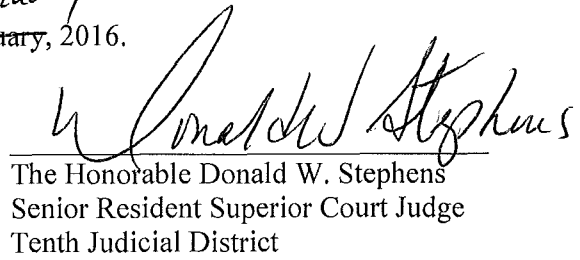 uary, 2016.
Donald W Stephens
The Honorable Donald W. Stephens
Senior Resident Superior Court Judge
Tenth Judicial District